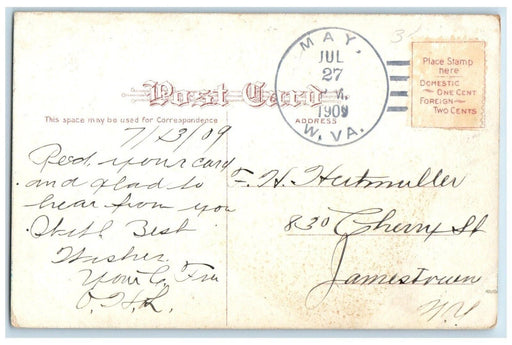 MAY.
JUL
27
1909
W. VA.
Place Stamp
here
DOMESTIC
ONE CENT
FOREIGN
TWO CENTS
Post Card
This space may be used for Correspondence
ADDRESS
7/23/09
Recd your card
and glad to
hear from you
With Best
Wishes
Your C. Frn
O. H. L.
F. H. Heitmuller
830 Cherry St
Jamestown
N.Y